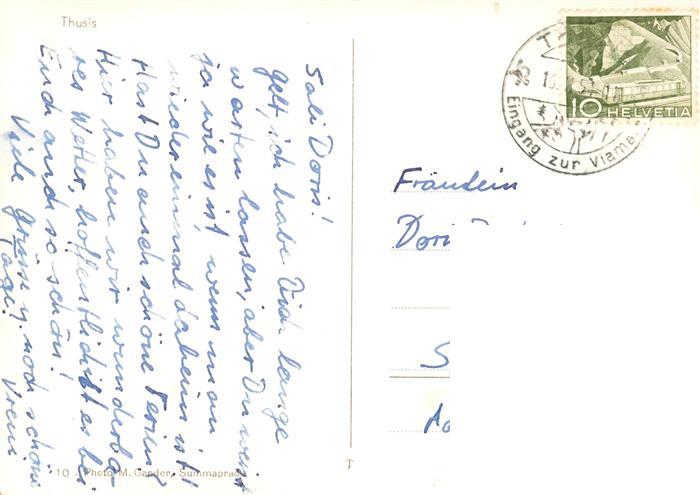 Thusis
Sali Doris!
Gelt, ich habe Dich lange
warten lassen, aber Du weisst
ja wie es ist, wenn man
wieder einmal daheim ist!
Hast Du auch schöne Ferien?
Hier haben wir wunderba-
res Wetter, hoffentlich ist es bei
Euch auch so schön!
Viele Grüsse u. noch schöne
Tage! Vreni
10 - Photo M. Gander, Summaprada
T
10 HELVETIA
Eingang zur Viama
Fräulein
Dori
S